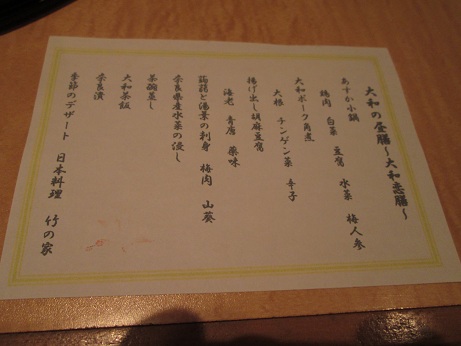 大和の昼膳～大和恋膳～
あすか小鍋
鶏肉 白菜 豆腐 水菜 梅人参
大和ポーク角煮
大根 チンゲン菜 辛子
揚げ出し胡麻豆腐
海老 青唐 薬味
蒟蒻と湯葉の刺身 梅肉 山葵
奈良県産水菜の浸し
茶碗蒸し
大和茶飯
奈良漬
季節のデザート 日本料理 竹の家